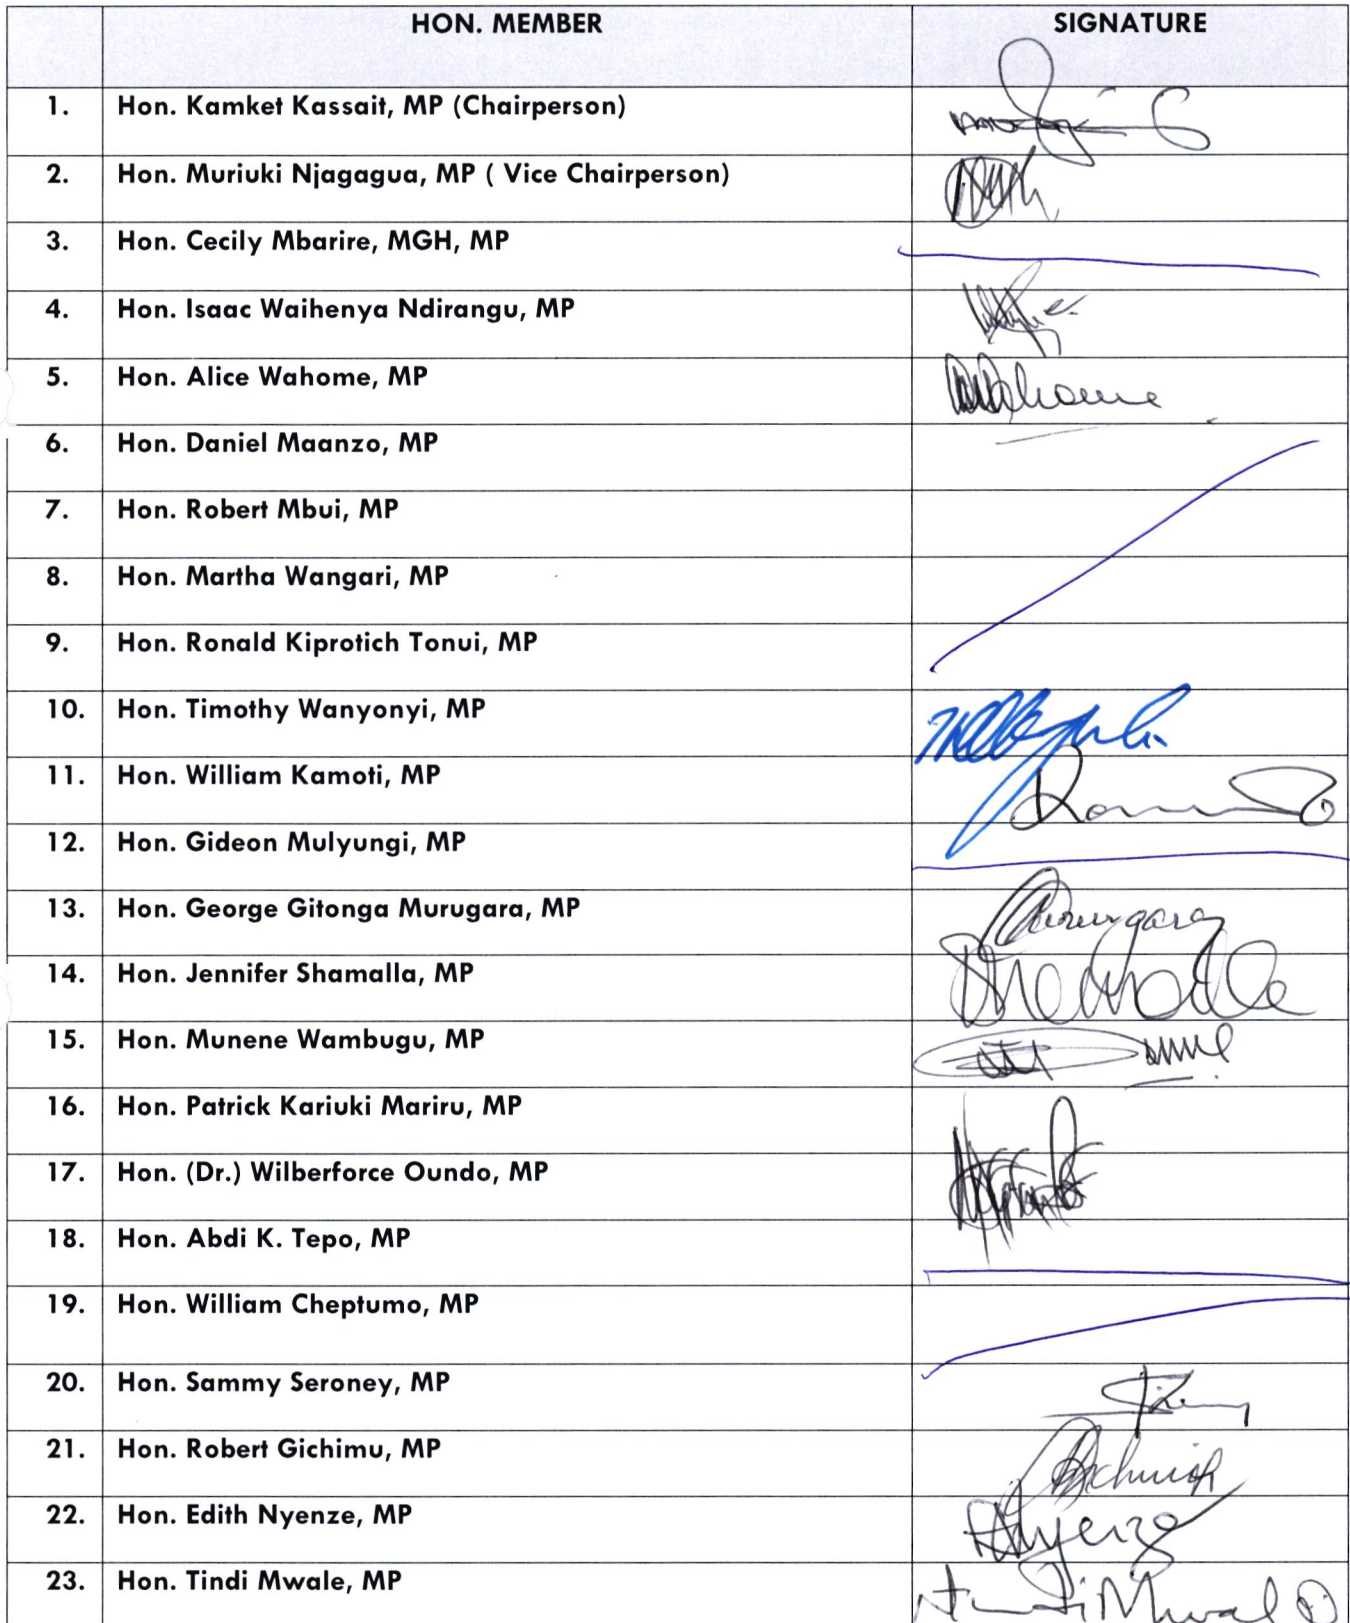 HON. MEMBER SIGNATURE
1. Hon. Kamket Kassait, MP (Chairperson)
2. Hon. Muriuki Njagagua, MP ( Vice Chairperson)
3. Hon. Cecily Mbarire, MGH, MP
4. Hon. Isaac Waihenya Ndirangu, MP
5. Hon. Alice Wahome, MP
6. Hon. Daniel Maanzo, MP
7. Hon. Robert Mbui, MP
8. Hon. Martha Wangari, MP
9. Hon. Ronald Kiprotich Tonui, MP
10. Hon. Timothy Wanyonyi, MP
11. Hon. William Kamoti, MP
12. Hon. Gideon Mulyungi, MP
13. Hon. George Gitonga Murugara, MP
14. Hon. Jennifer Shamalla, MP
15. Hon. Munene Wambugu, MP
16. Hon. Patrick Kariuki Mariru, MP
17. Hon. (Dr.) Wilberforce Oundo, MP
18. Hon. Abdi K. Tepo, MP
19. Hon. William Cheptumo, MP
20. Hon. Sammy Seroney, MP
21. Hon. Robert Gichimu, MP
22. Hon. Edith Nyenze, MP
23. Hon. Tindi Mwale, MP